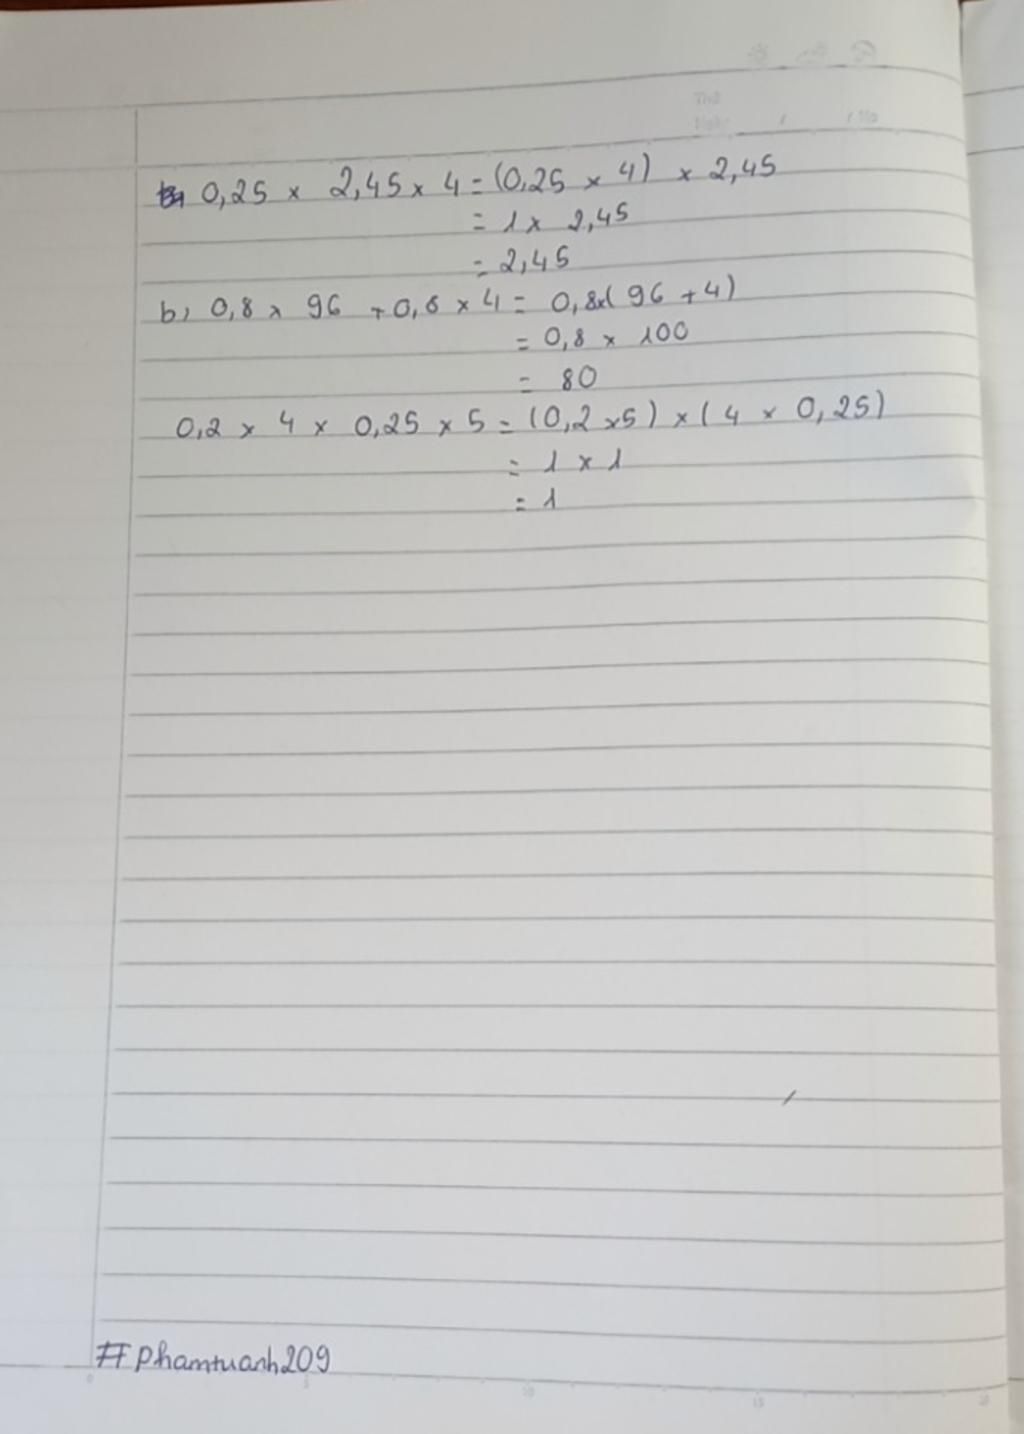 Thứ
Ngày / / No
0,25 × 2,45 × 4 = (0,25 × 4) × 2,45
= 1 × 2,45
= 2,45
b) 0,8 × 96 + 0,8 × 4 = 0,8x( 96 + 4)
= 0,8 × 100
= 80
0,2 × 4 × 0,25 × 5 = (0,2 ×5) × ( 4 × 0,25)
= 1 × 1
= 1
#phamtuanh209
0 5 10 15 20